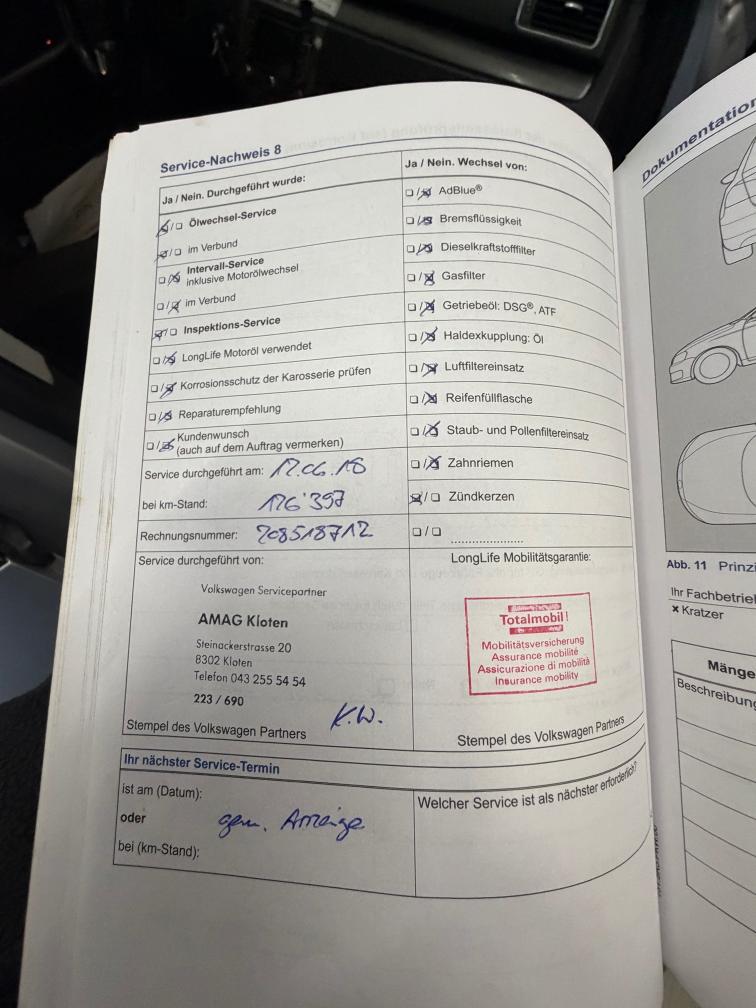 Service-Nachweis 8
Ja / Nein. Durchgeführt wurde:
☒/☐ Ölwechsel-Service
☒/☐ im Verbund
☐/☒ Intervall-Service
inklusive Motorölwechsel
☐/☒ im Verbund
☒/☐ Inspektions-Service
☐/☒ LongLife Motoröl verwendet
☐/☒ Korrosionsschutz der Karosserie prüfen
☐/☒ Reparaturempfehlung
☐/☒ Kundenwunsch
(auch auf dem Auftrag vermerken)
Service durchgeführt am: 12.06.18
bei km-Stand: 126'397
Rechnungsnummer: 208518712
Service durchgeführt von:
Volkswagen Servicepartner
AMAG Kloten
Steinackerstrasse 20
8302 Kloten
Telefon 043 255 54 54
223 / 690
K.W.
Stempel des Volkswagen Partners
Ja / Nein. Wechsel von:
☐/☒ AdBlue®
☐/☒ Bremsflüssigkeit
☐/☒ Dieselkraftstofffilter
☐/☒ Gasfilter
☐/☒ Getriebeöl: DSG®, ATF
☐/☒ Haldexkupplung: Öl
☐/☒ Luftfiltereinsatz
☐/☒ Reifenfüllflasche
☐/☒ Staub- und Pollenfiltereinsatz
☐/☒ Zahnriemen
☒/☐ Zündkerzen
☐/☐ ......................
LongLife Mobilitätsgarantie:
Totalmobil!
Mobilitätsversicherung
Assurance mobilité
Assicurazione di mobilità
Insurance mobility
Stempel des Volkswagen Partners
Ihr nächster Service-Termin
ist am (Datum):
oder
gem. Anzeige
bei (km-Stand):
Welcher Service ist als nächster erforderlich?
Dokumentation
Abb. 11 Prinzi
Ihr Fachbetrie
× Kratzer
Mänge
Beschreibung